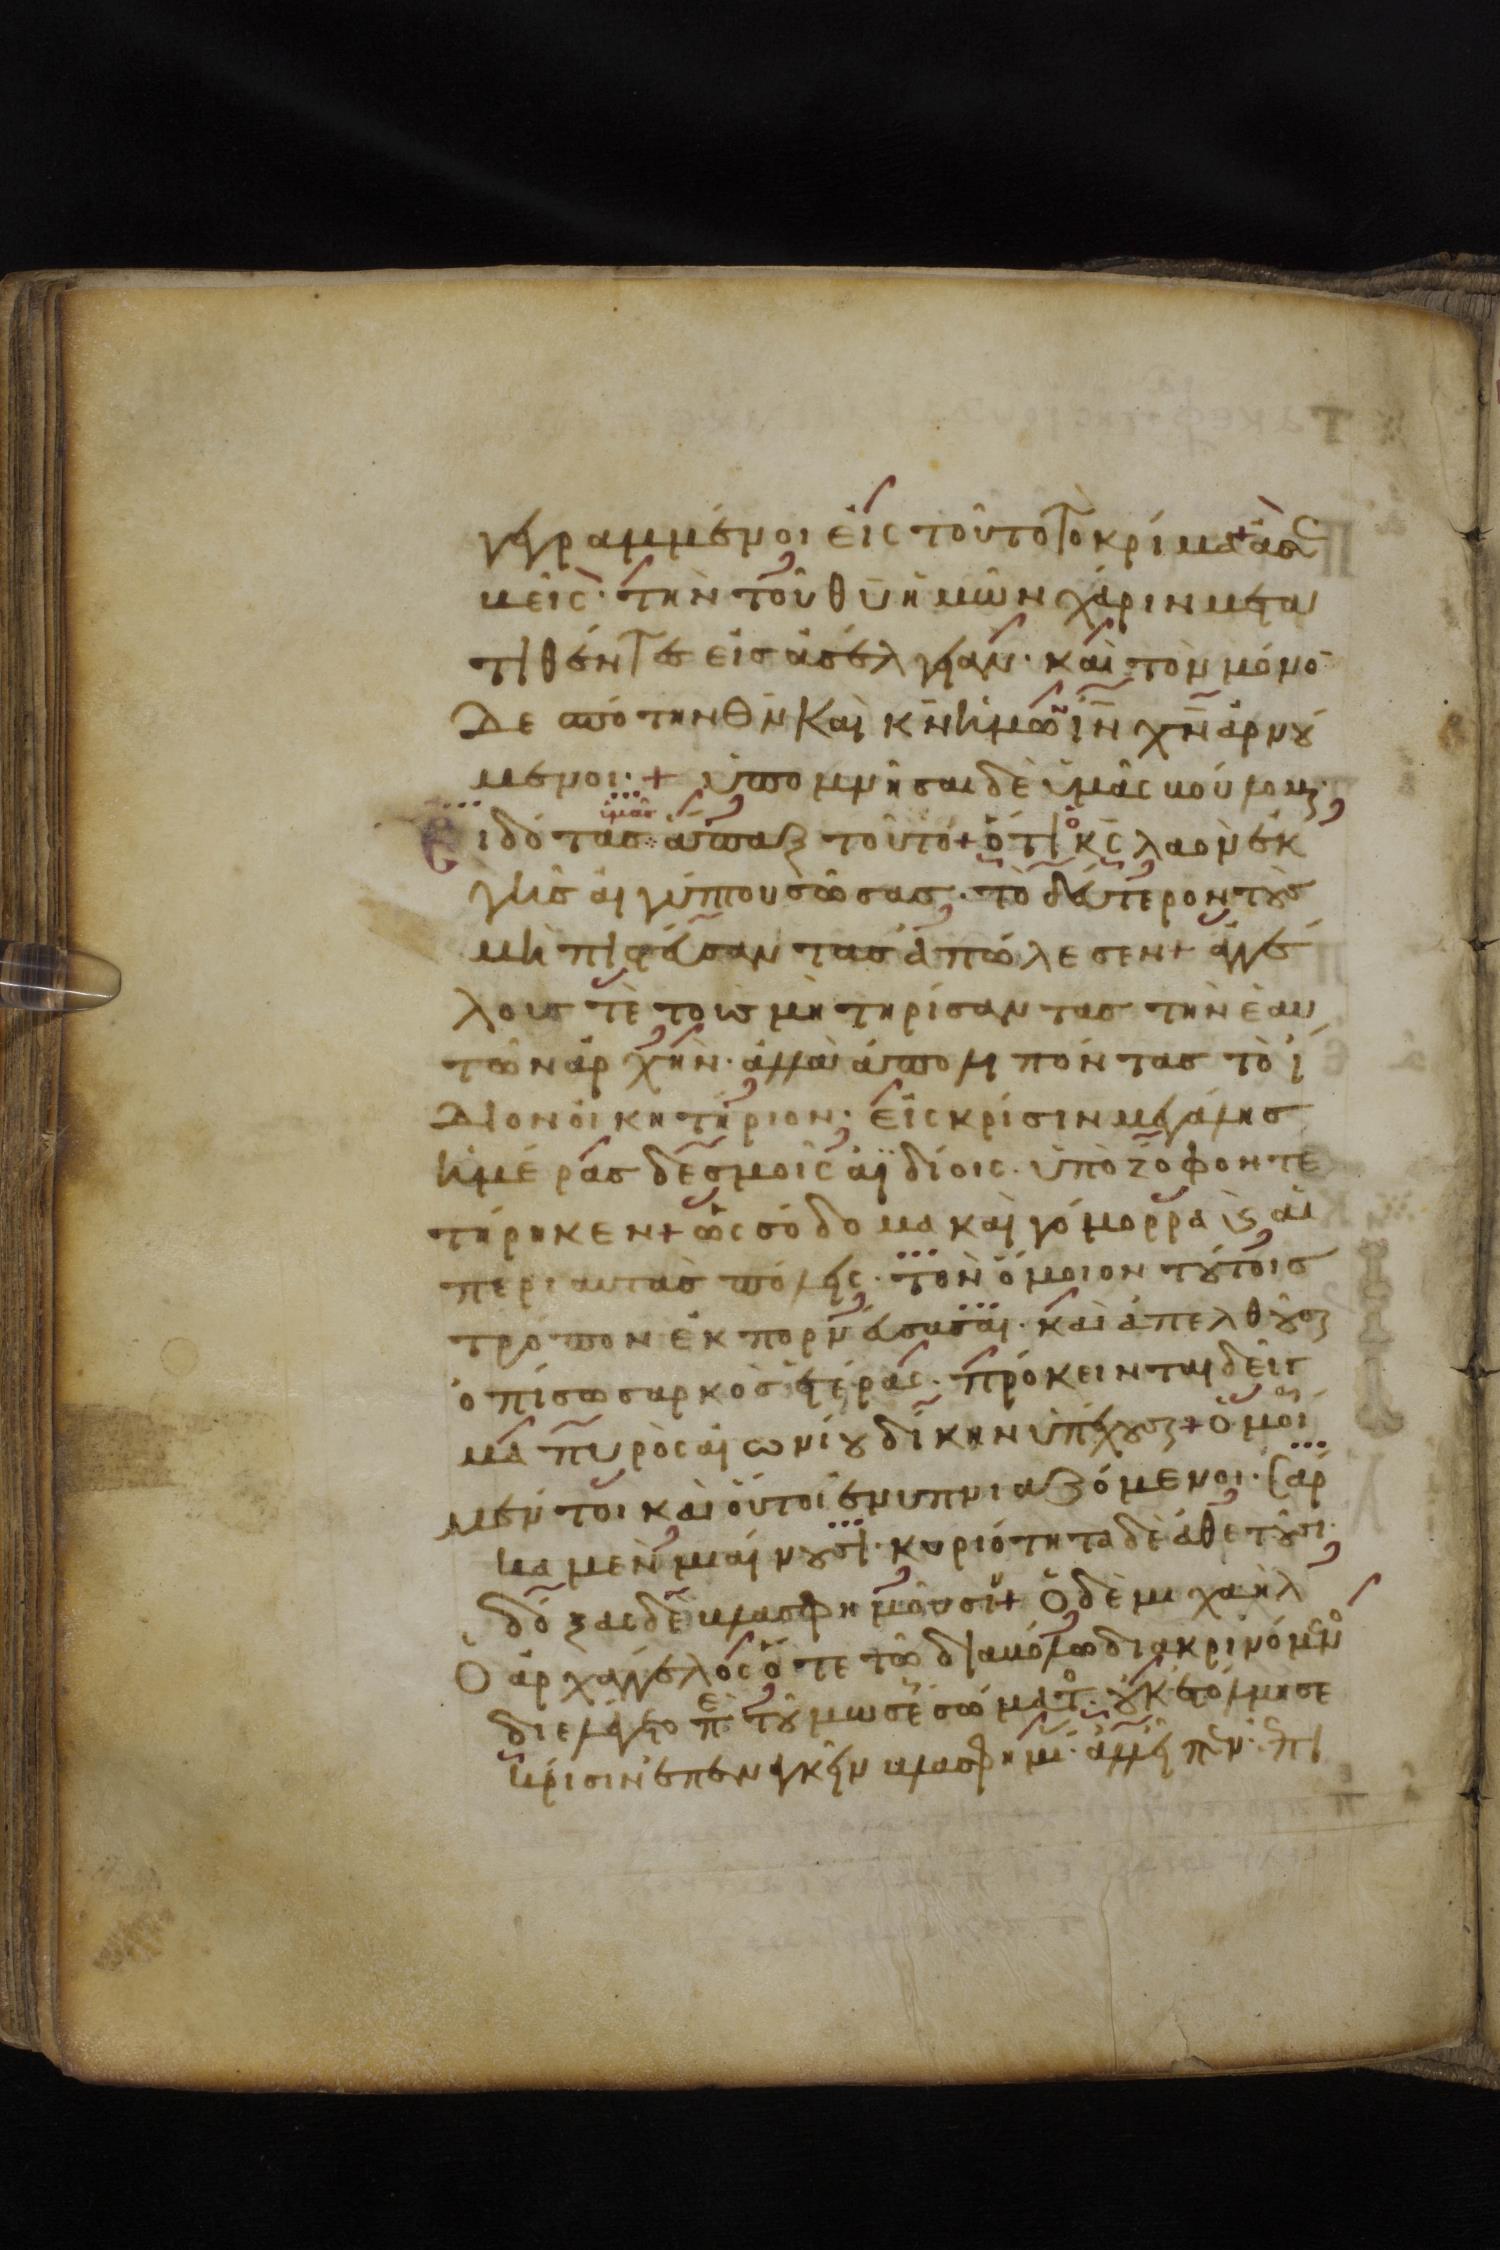 γεγραμμένοι εἰς τοῦτο τὸ κρίμα + ἀσε
βεῖς· τὴν τοῦ θυ ἡμῶν χάριν μετα
τιθέντες εἰς ἀσέλγειαν· καὶ τὸν μόνο
δεσπότην θν καὶ κν ἡμῶν ιν χν ἀρνού
μενοι· + ὑπομνῆσαι δὲ ὑμᾶς βούλομαι·
εἰδότας ὑμᾶς ἅπαξ τοῦτο + ὅτι ὁ κς λαὸν ἐκ
γῆς αἰγύπτου σώσας· τὸ δεύτερον τοὺς
μὴ πιστεύσαντας ἀπώλεσεν + ἀγγέ
λους τὲ τοὺς μὴ τηρίσαντας τὴν ἑαυ
τῶν ἀρχὴν· ἀλλὰ ἀπολιπόντας τὸ ἴ
διον οἰκητήριον· εἰς κρίσιν μεγάλης
ἡμέρας δεσμοῖς ἀϊδίοις· ὑπὸ ζόφον τε
τήρηκεν + ὡς σόδομα καὶ γόμορρα κ αἱ
περι αυτὰς πόλεις· τὸν ὅμοιον τούτοις
τρόπον ἐκπορνεύσασαι· καὶ ἀπελθοῦσαι
ὀπίσω σαρκὸς ἑτέρας· πρόκεινται δεῖγ
μα πυρὸς αἰωνίου δίκην ὑπέχουσαι + ὁμοί
μέντοι καὶ οὗτοι ἐνυπνιαζόμενοι· σάρ
κα μὲν μιαίνουσι· κυριότητα δὲ ἀθετοῦσι·
δόξας δὲ βλασφημοῦσιν + Ὁ δὲ μιχαὴλ
Ὁ ἀρχάγγελος ὅτε τῶ διαβόλω διακρινόμενο
διελέγετο πε τοῦ μωσέ σώματο· οὐκ ἐτόλμησε
κρίσιν ἐπενεγκεῖν βλασφημί· ἀλλ εἶπεν· ἐπι